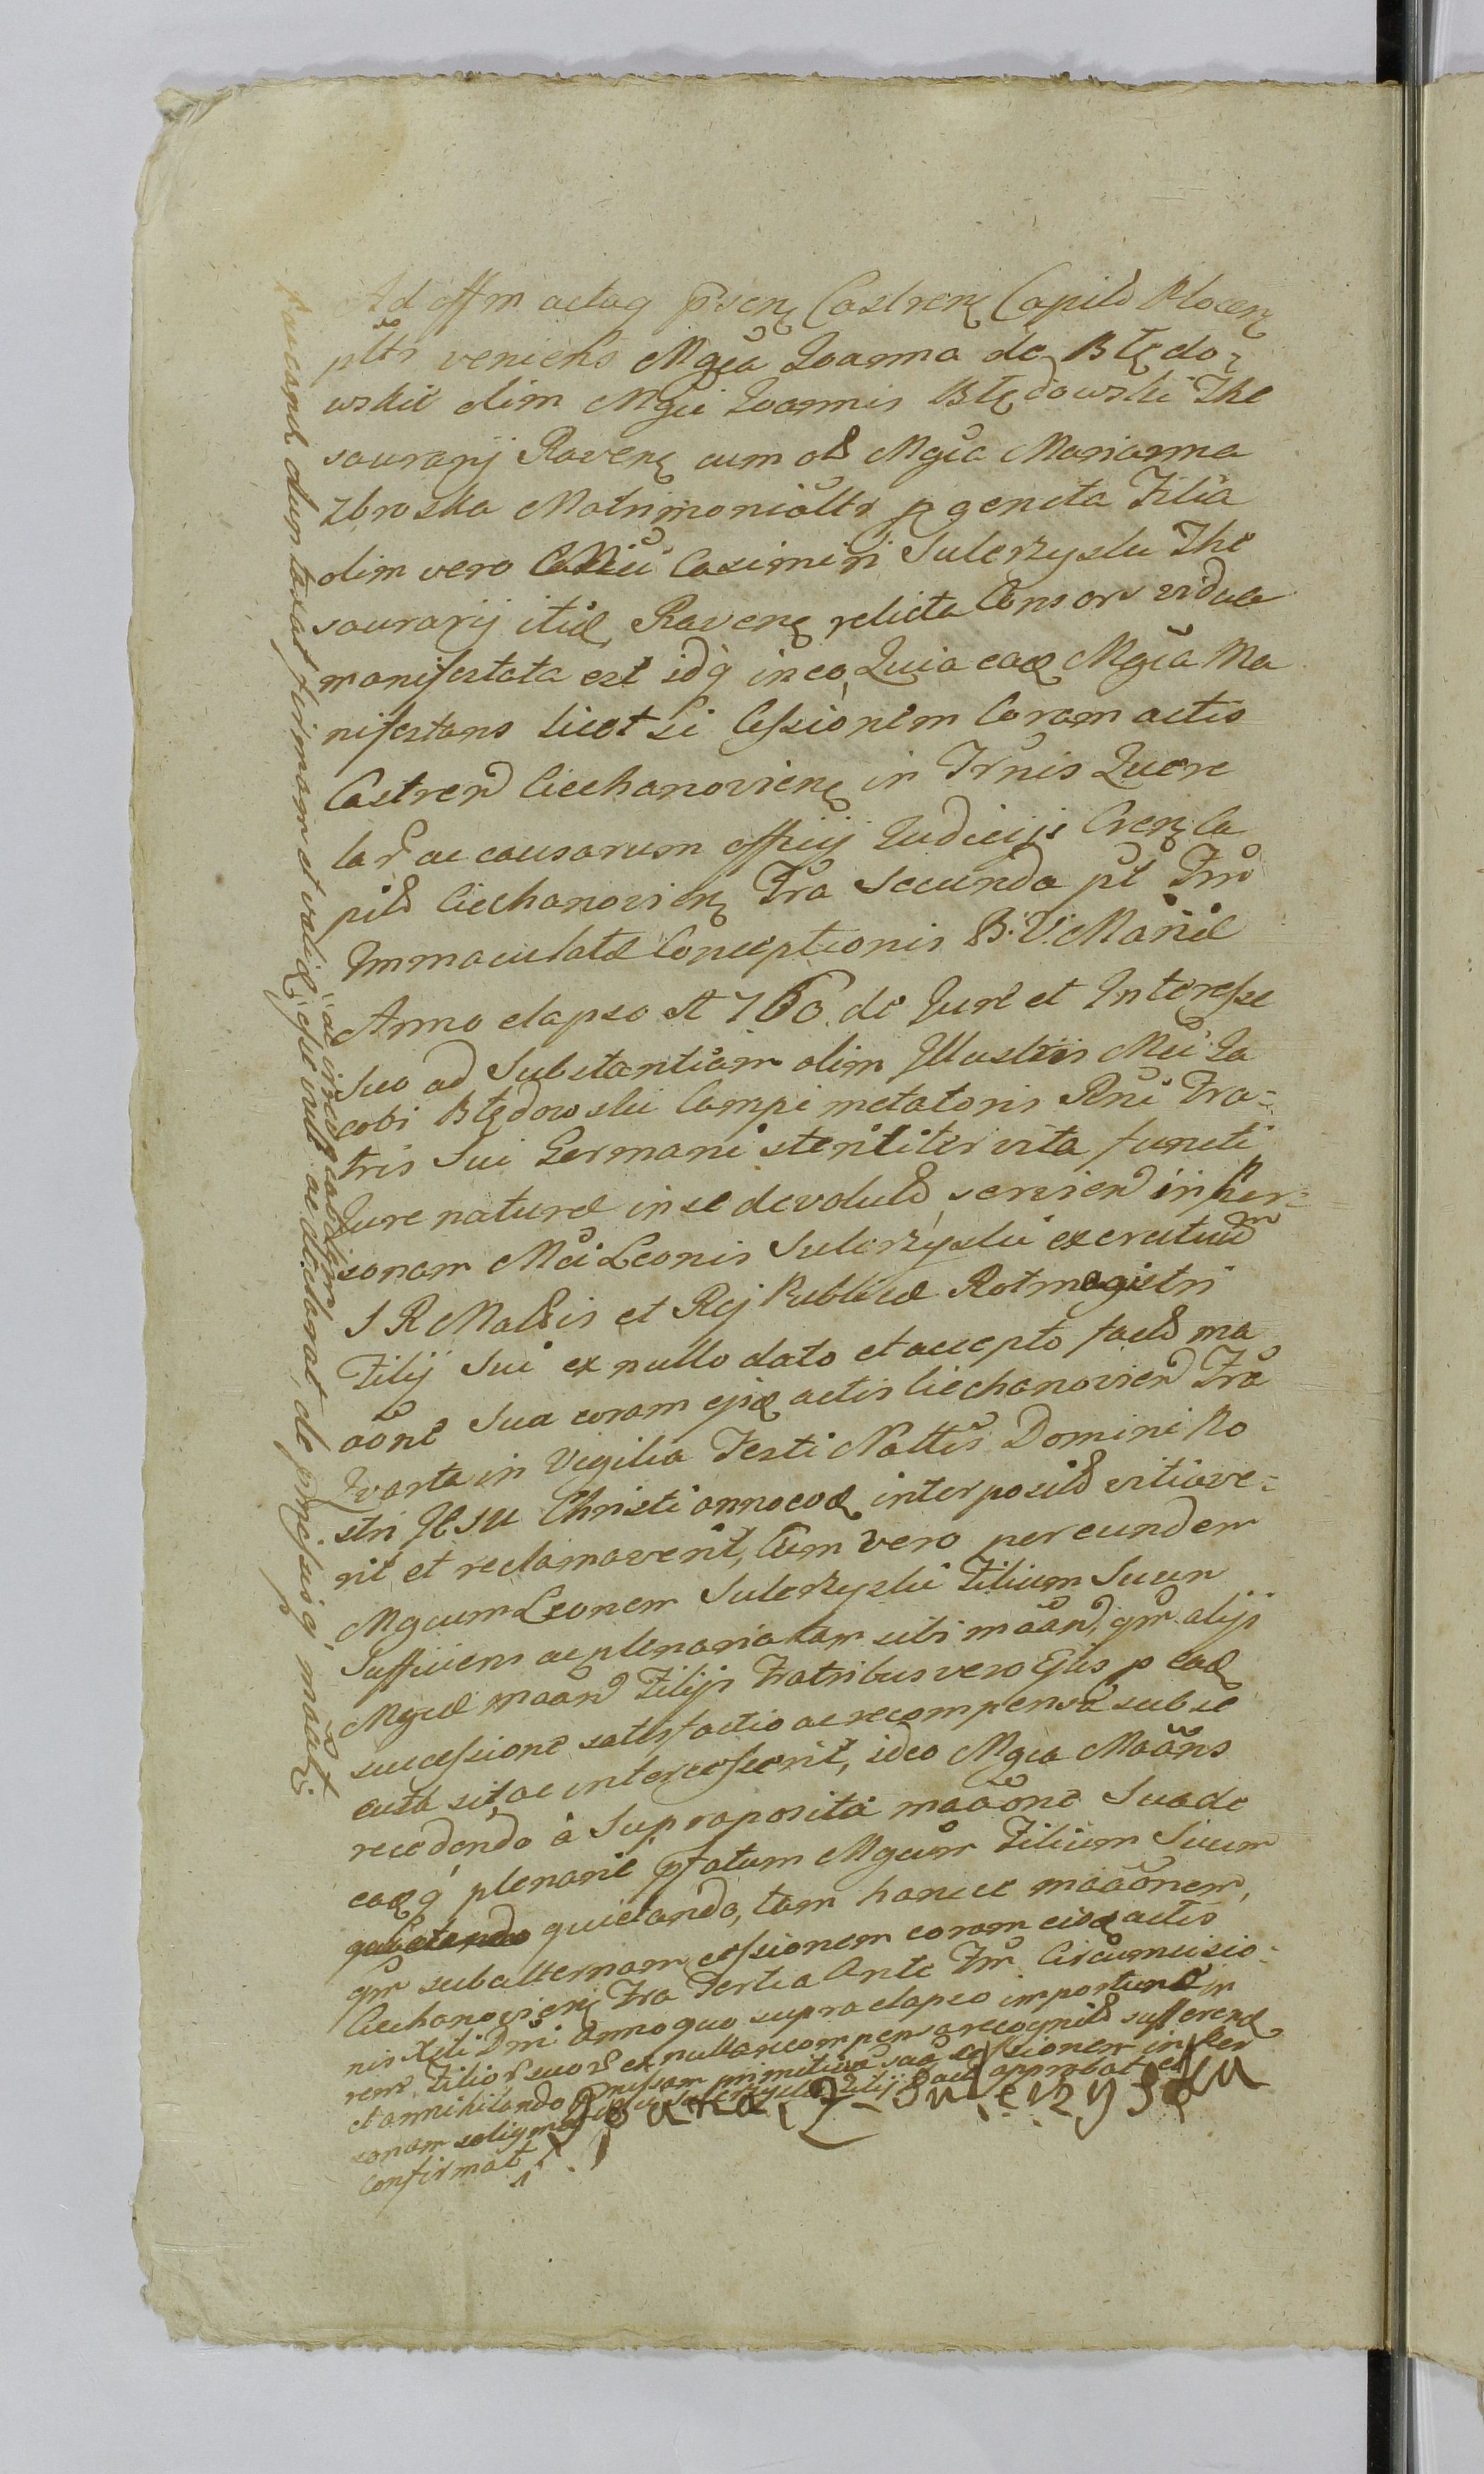 Ad offm actaq pñsen Castren Capitł Plocen
pltr veniens Mgca Joanna de Błędo=
wskie olim Mgci Joannis Błędowski The
saurarij Raven cum ol Mgca Marianna
Zbroska Matrimonialtr pgenita Filia
olim vero Mci Casimiri Sulerzyski The
saurarij itid Raven relicta Consors vidua
manifestata est idq in eo, Quia ead Mgca Ma
nifestans licet si Cessionem Coram actis
Castren Ciechanovien in Trnis Quere
lar ac causarum officij Judicijs Cren Ca
pitł Ciechanovien Fra Secunda pt Fm
Immaculatæ Conceptionis B. V. Mariæ
Anno elapso A 760. de Jure et Interesse
Suo ad Substantiam olim Illustris Mci Ja
cobi Błędowski Campi metatoris Rni Fra=
tris Sui Germani steriliter vita functi
Jure naturæ in se devolut, servien in Per=
sonam Mci Leonis Sulerzyski exercituum
S R Mattis et Rej Publicæ Rotmagistri
Filij Sui ex nullo dato et accepto fact ma
aõne Sua coram ejsd actis Ciechanovien Fra
Quarta in Vigilia Festi Nattis Domini No
stri Jesu Christi anno eod interposit vitiave=
rit et reclamaverit, Cum vero per eundem
Mgcum Leonem Sulerzyski Filium Suum
Sufficiens ac plenaria tam sibi maãn, qm alijs
Mgcæ maãn Filijs Fratribus vero Ejus p ead
successione satisfactio ac recompensa subse
cuta sit, ac intercesserit, ideo Mgca Maãns
recedendo à Supraposita maãone Sua de
eaq plenarie pfatum Mgcum Filium Suum
quietando, tam hancce maãonem,
qm subalternam cessionem coram eisd actis
Ciechanovien Fra Tertia Ante Fm Circumcisio=
nis Xti Dni anno quo supra elapso importune in
rem Filior suor ex nulla recompensa recognit sufferend
et annihilando pmissam primitiva sua cessionem in Per
sonam solius Mgci Sulerzyski Filij Sui approbat et
confirmat
Joanna Z Sulerzyska